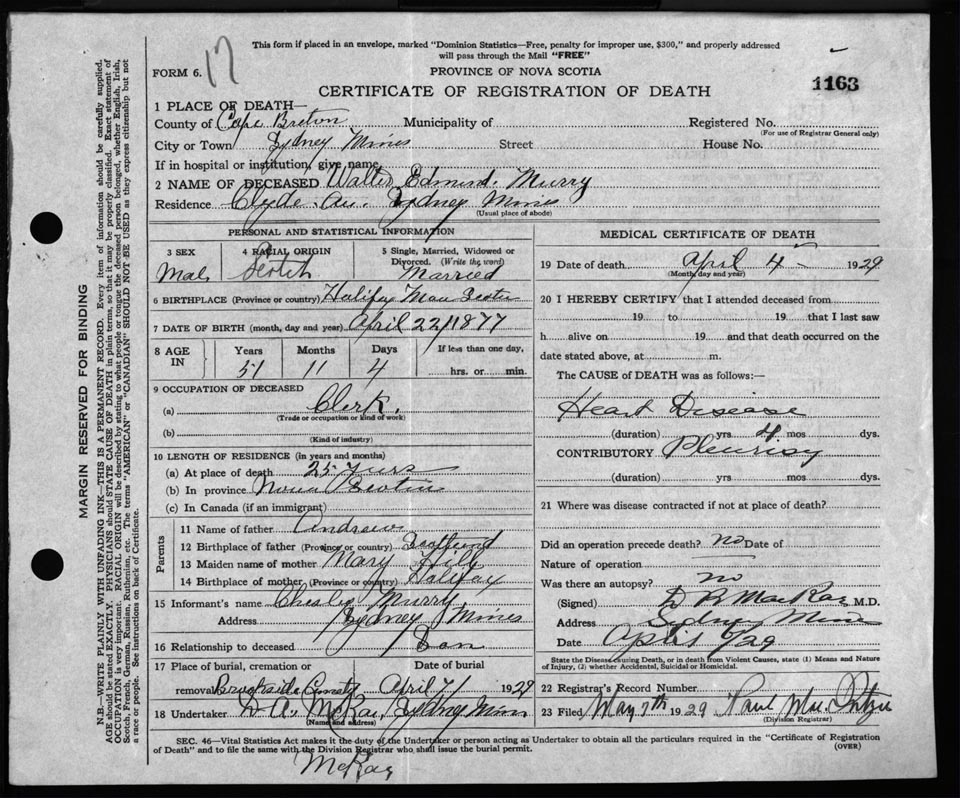 17
This form if placed in an envelope, marked "Dominion Statistics—Free, penalty for improper use, $300," and properly addressed
will pass through the Mail "FREE"
FORM 6.
PROVINCE OF NOVA SCOTIA
CERTIFICATE OF REGISTRATION OF DEATH
1163
1 PLACE OF DEATH—
County of Cape Breton Municipality of Registered No.
(For use of Registrar General only)
City or Town Sydney Mines Street House No.
If in hospital or institution, give name
2 NAME OF DECEASED Walter Edmund Murry
Residence Clyde Av. Sydney Mines
(Usual place of abode)
PERSONAL AND STATISTICAL INFORMATION
3 SEX 4 RACIAL ORIGIN 5 Single, Married, Widowed or
Divorced. (Write the word)
Male Scotch Married
6 BIRTHPLACE (Province or country) Halifax Nova Scotia
7 DATE OF BIRTH (month, day and year) April 22/1877
8 AGE IN Years Months Days If less than one day,
51 11 4 hrs. or min.
9 OCCUPATION OF DECEASED
(a) Clerk.
(Trade or occupation or kind of work)
(b)
(Kind of industry)
10 LENGTH OF RESIDENCE (in years and months)
(a) At place of death 25 years
(b) In province Nova Scotia
(c) In Canada (if an immigrant)
Parents
11 Name of father Andrew
12 Birthplace of father (Province or country) Scotland
13 Maiden name of mother Mary Hill
14 Birthplace of mother (Province or country) Halifax
15 Informant's name Chesley Murry
Address Sydney Mines
16 Relationship to deceased Son
17 Place of burial, cremation or Date of burial
removal Brookside Cemetry April 7/ 1929
18 Undertaker D A. McRae, Sydney Mines
(Name and address)
MEDICAL CERTIFICATE OF DEATH
19 Date of death April 4 1929
(Month, day and year)
20 I HEREBY CERTIFY that I attended deceased from
19 to 19 that I last saw
h alive on 19 and that death occurred on the
date stated above, at m.
The CAUSE of DEATH was as follows:—
Heart Disease
(duration) yrs 4 mos dys.
CONTRIBUTORY Pleurisy
(duration) yrs. mos. dys.
21 Where was disease contracted if not at place of death?
Did an operation precede death? no Date of
Nature of operation
Was there an autopsy? no
(Signed) MacRae M.D.
Address Sydney Mines
Date April 6/29
State the Disease causing Death, or in death from Violent Causes, state (1) Means and Nature
of Injury, (2) whether Accidental, Suicidal or Homicidal.
22 Registrar's Record Number
23 Filed May 7th 1929 Paul
(Division Registrar)
SEC. 46—Vital Statistics Act makes it the duty of the Undertaker or person acting as Undertaker to obtain all the particulars required in the "Certificate of Registration
of Death" and to file the same with the Division Registrar who shall issue the burial permit.
(OVER)
McRae
MARGIN RESERVED FOR BINDING
N.B.—WRITE PLAINLY WITH UNFADING INK—THIS IS A PERMANENT RECORD. Every item of information should be carefully supplied.
AGE should be stated EXACTLY. PHYSICIANS should STATE CAUSE OF DEATH in plain terms, so that it may be properly classified. Exact statement of
OCCUPATION is very important. RACIAL ORIGIN will be described by stating to what people or tongue the deceased person belonged, whether English, Irish,
Scotch, French, German, Russian, Ruthenian, etc. The terms "AMERICAN" or "CANADIAN" SHOULD NOT BE USED as they express citizenship but not
a race or people. See instructions on back of Certificate.